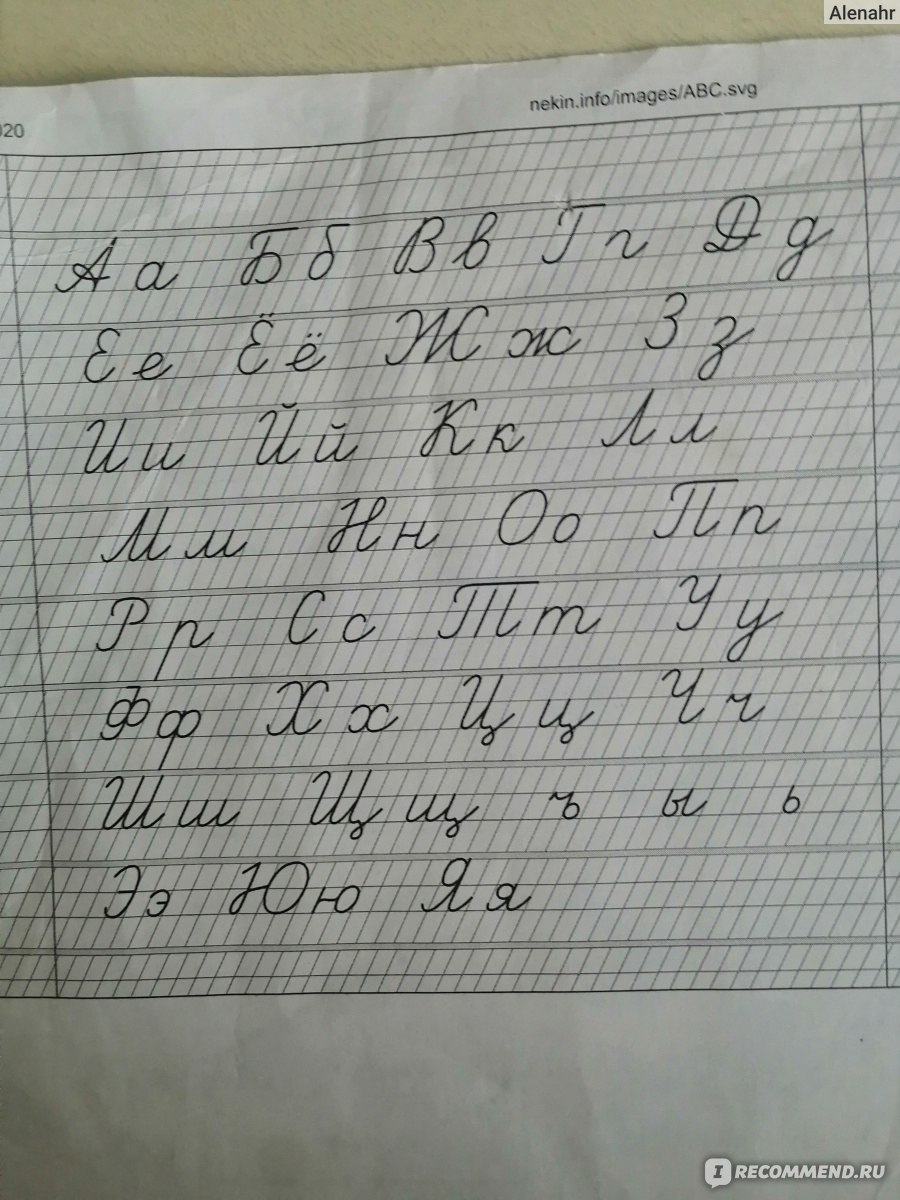 Alenahr
nekin.info/images/ABC.svg
020
А а Б б В в Г г Д д
Е е Ё ё Ж ж З з
И и Й й К к Л л
М м Н н О о П п
Р р С с Т т У у
Ф ф Х х Ц ц Ч ч
Ш ш Щ щ ъ ы ь
Э э Ю ю Я я
IRECOMMEND.RU